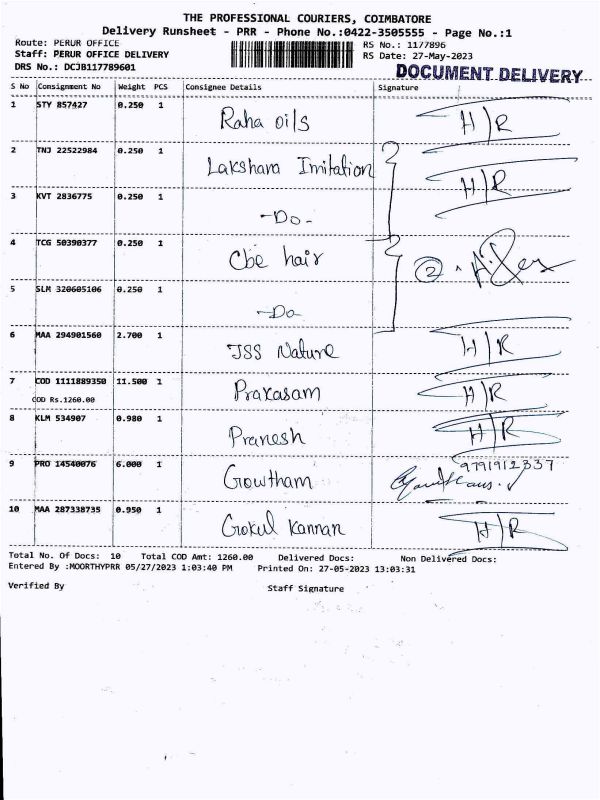 THE PROFESSIONAL COURIERS, COIMBATORE
Delivery Runsheet - PRR - Phone No.:0422-3505555 - Page No.:1
Route: PERUR OFFICE RS No.: 1177896
Staff: PERUR OFFICE DELIVERY RS Date: 27-May-2023
DRS No.: DCJB117789601 DOCUMENT DELIVERY
S No Consignment No Weight PCS Consignee Details Signature
1 STY 857427 0.250 1 Raha oils H/R
2 TNJ 22522984 0.250 1 Lakshara Imitation H/R
3 KVT 2836775 0.250 1 -Do-
4 TCG 50390377 0.250 1 Cbe hair 2
5 SLM 320605106 0.250 1 -Do
6 MAA 294901560 2.700 1 JSS Nature H/R
7 COD 1111889350 11.500 1 Prakasam H/R
COD Rs.1260.00
8 KLM 534907 0.980 1 Pranesh H/R
9 PRO 14540076 6.000 1 Gowtham 9791912337
10 MAA 287338735 0.950 1 Gokul Kannan H/R
Total No. Of Docs: 10 Total COD Amt: 1260.00 Delivered Docs: Non Delivered Docs:
Entered By :MOORTHYPRR 05/27/2023 1:03:40 PM Printed On: 27-05-2023 13:03:31
Verified By Staff Signature